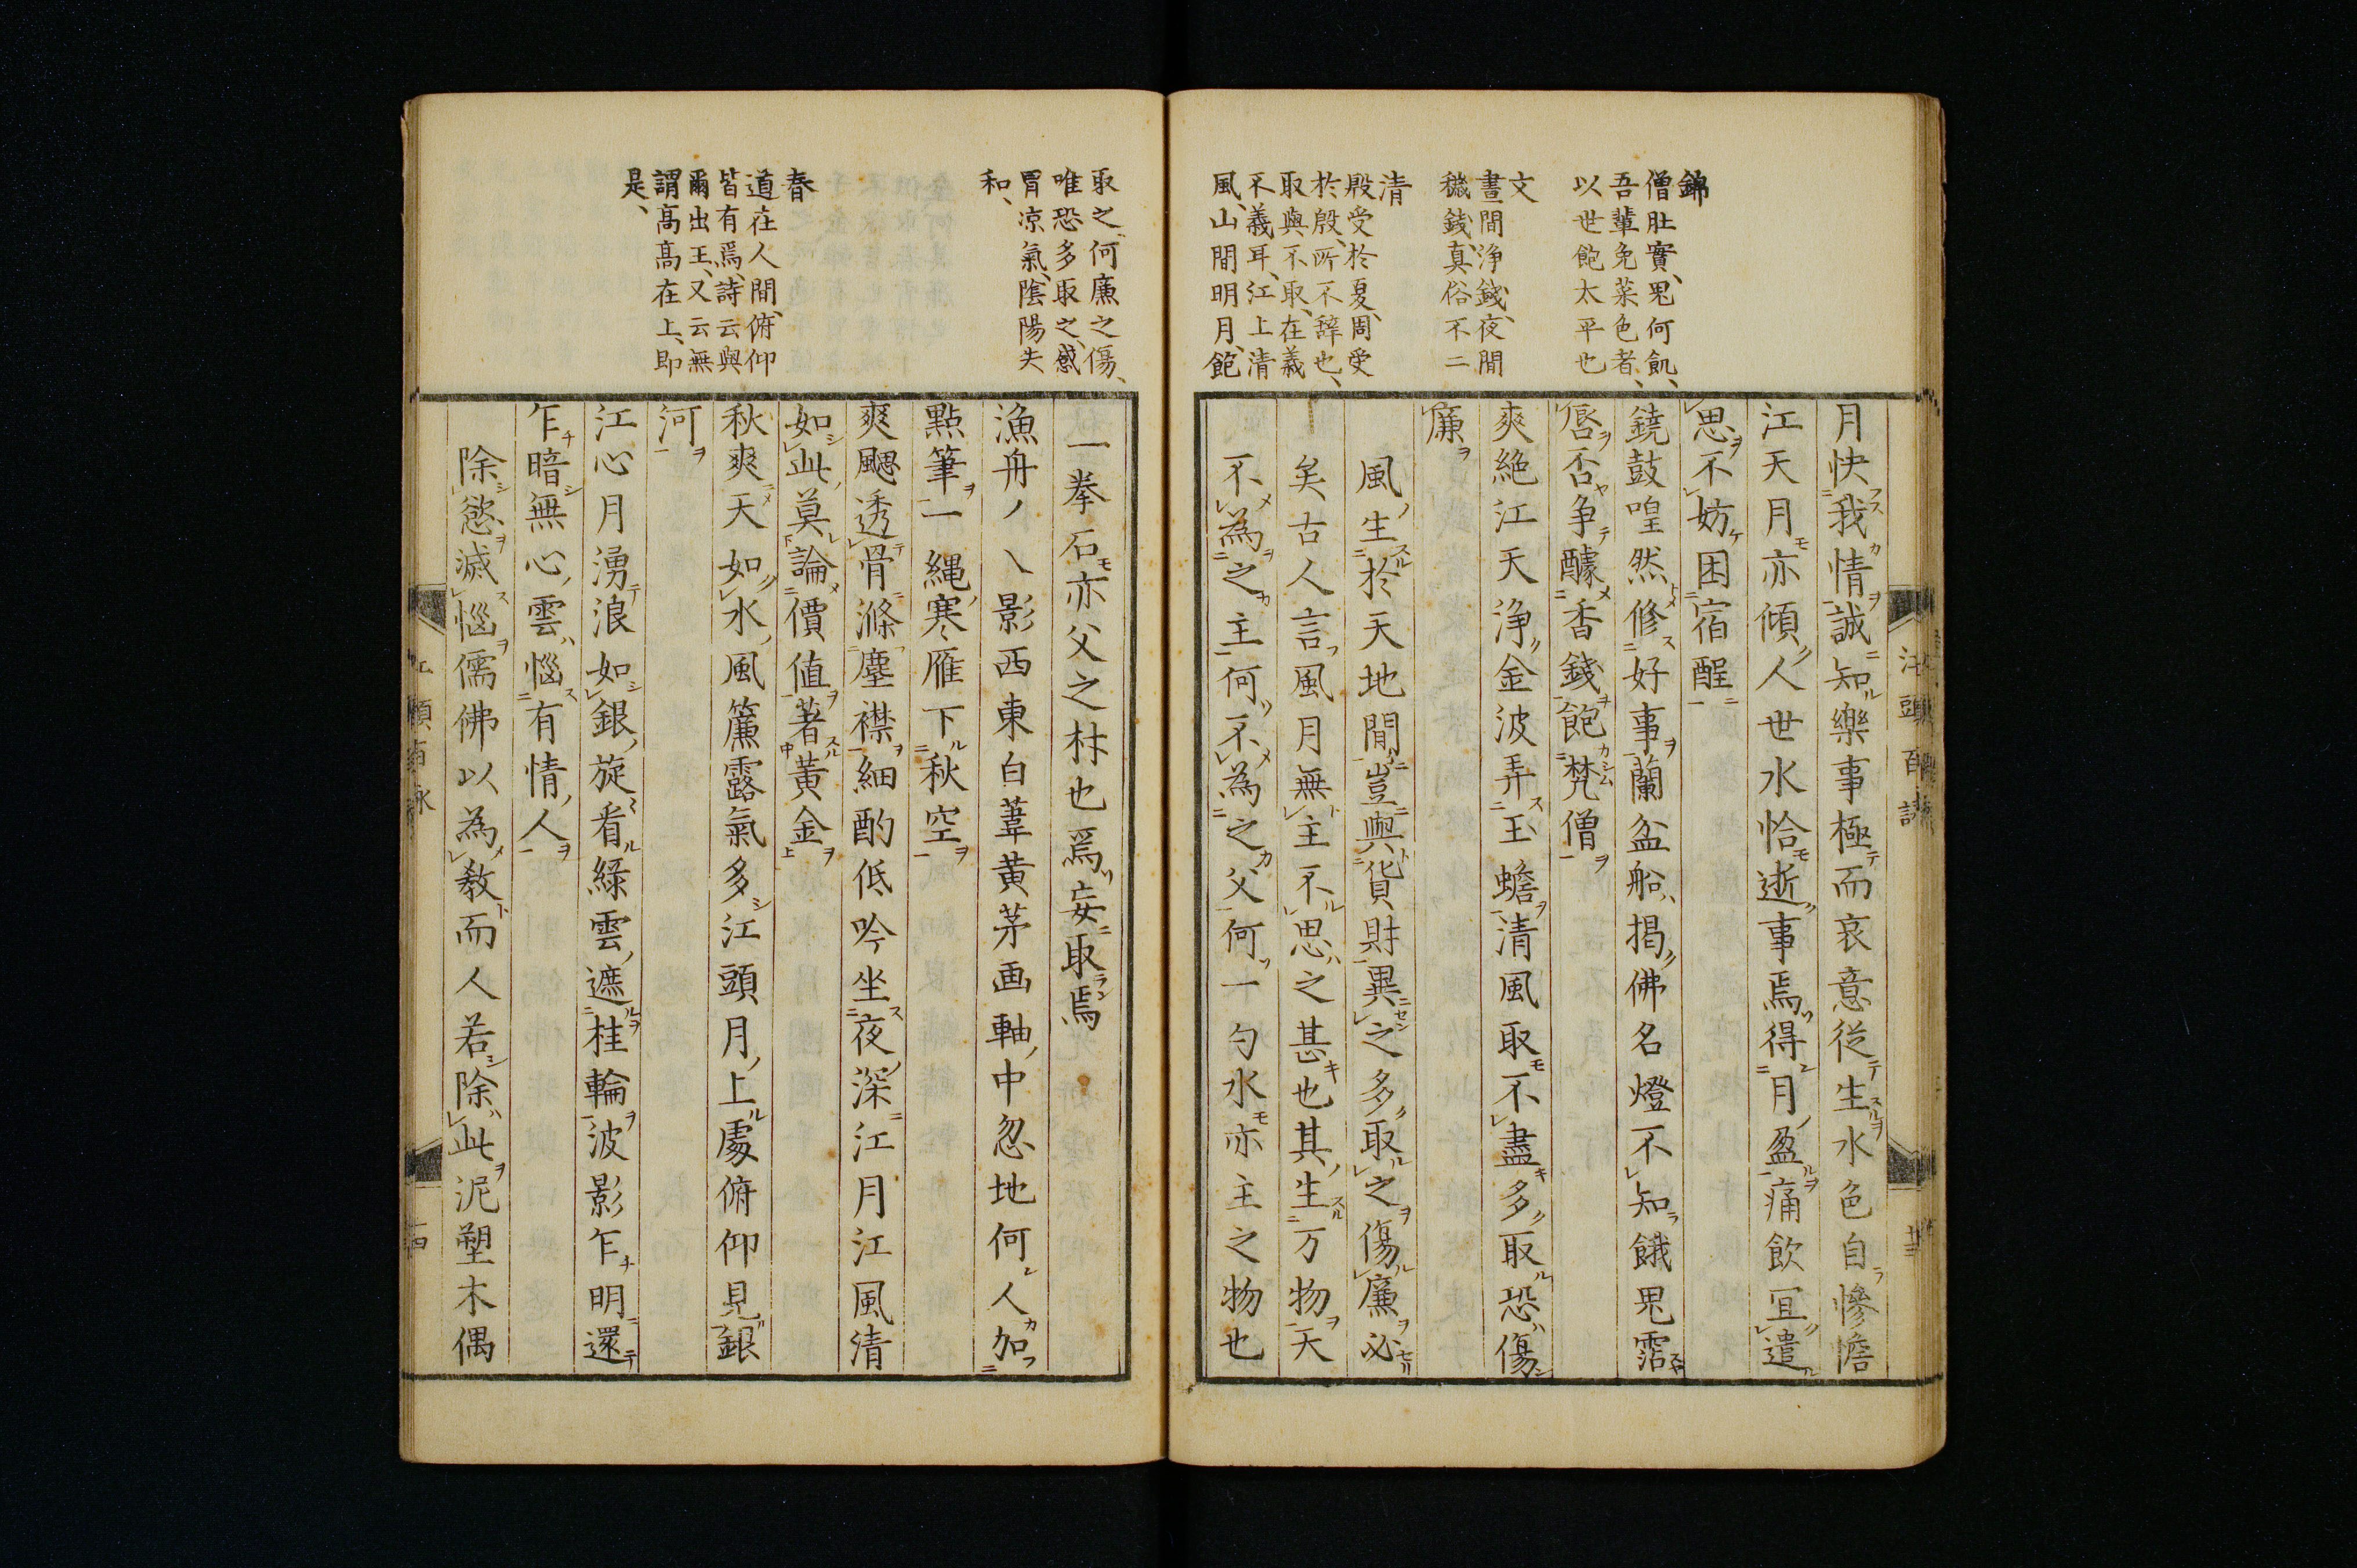 錦
僧肚實、鬼何飢、
吾輩免菜色者、
以世飽太平也
文
晝間浄錢、夜間
穢錢、真俗不二
清
殷受於夏、周受
於殷、所不辞也、
取與不取、在義
不義耳、江上清
風、山間明月、飽
月快我情誠知樂事極而哀意従生水色自慘憺
江天月亦傾人世水恰逝事焉得月盈痛飲宜遣
思不妨困宿酲
鐃鼓喤然修好事蘭盆船揭佛名燈不知餓鬼霑
唇否争醵香錢飽梵僧
爽絶江天浄金波弄玉蟾清風取不盡多取恐傷
廉
風生於天地間豈與貨財異之多取之傷廉必
矣古人言風月無主不思之甚也其生万物天
不為之主何不為之父何一勺水亦主之物也
江頭百詠
十三
取之、何廉之傷、
唯恐多取之、感
胃凉氣、陰陽失
和、
春
道在人間、俯仰
皆有焉、詩云與
爾出王、又云無
謂高高在上、即
是、
一拳石亦父之材也焉妄取焉
漁舟ノ乀影西東白葦黄茅画軸中忽地何人加
點筆一繩寒雁下秋空
爽颸透骨滌塵襟細酌低吟坐夜深江月江風清
如此莫論價値著黄金
秋爽天如水風簾露氣多江頭月上處俯仰見銀
河
江心月湧浪如銀旋看緑雲遮桂輪波影乍明還
乍暗無心雲惱有情人
除慾滅惱儒佛以為教而人若除此泥塑木偶
十四